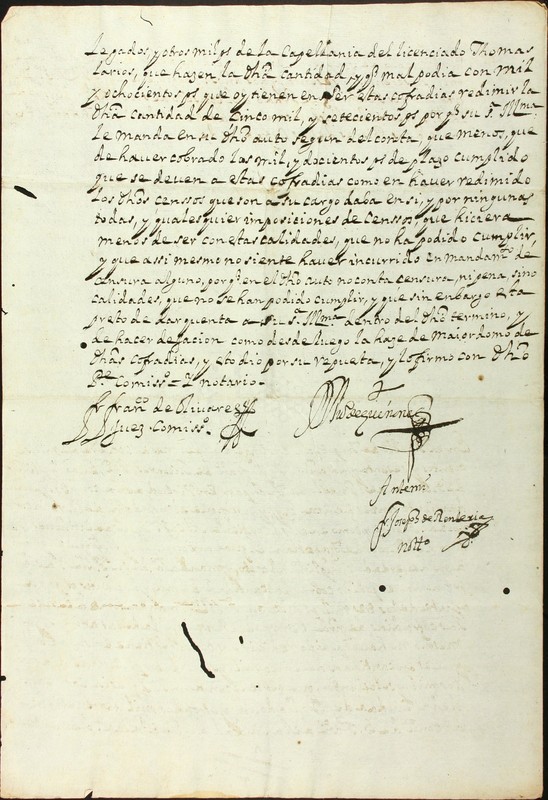 legados, y otros mil ps de la Capellania del licenciado Thomas
larios, que hazen la dha cantidad, y q mal podia con mil
y ochocientos ps que oy tienen en ser estas cofradias redimir la
dha cantidad de cinco mil, y setecientos ps por q su sa Illma
le manda en su dho auto segun del consta, que menos, que
de hauer cobrado los mil, y docientos ps de plazo cumplido
que se deuen a estas cofradias como en hauer redimido
los dhos censsos que son a su cargo daba en si, y por ningunas
todas, y qualesquier imposiciones de censsos, que hiciera
menos de ser con estas calidades, que no ha podido cumplir,
y que assi mesmo no siente hauer incurrido en mandamto de
censura alguno, porq en el dho auto no conta censura, ni pena, sino
calidades, que no se han podido cumplir, y que sin enbargo esta
presto de dar quenta a su sa Illma dentro del dho termino, y
de hacer dejacion como desde luego la haze de maiordomo de
dhas cofradias, y esto dio por su repuesta, y lo firmo con dho
Pe Comisso = y notario.
fr Franco de Oliuares
Juez Comisso.
Antemi
fr Joseph de Renteria
notto